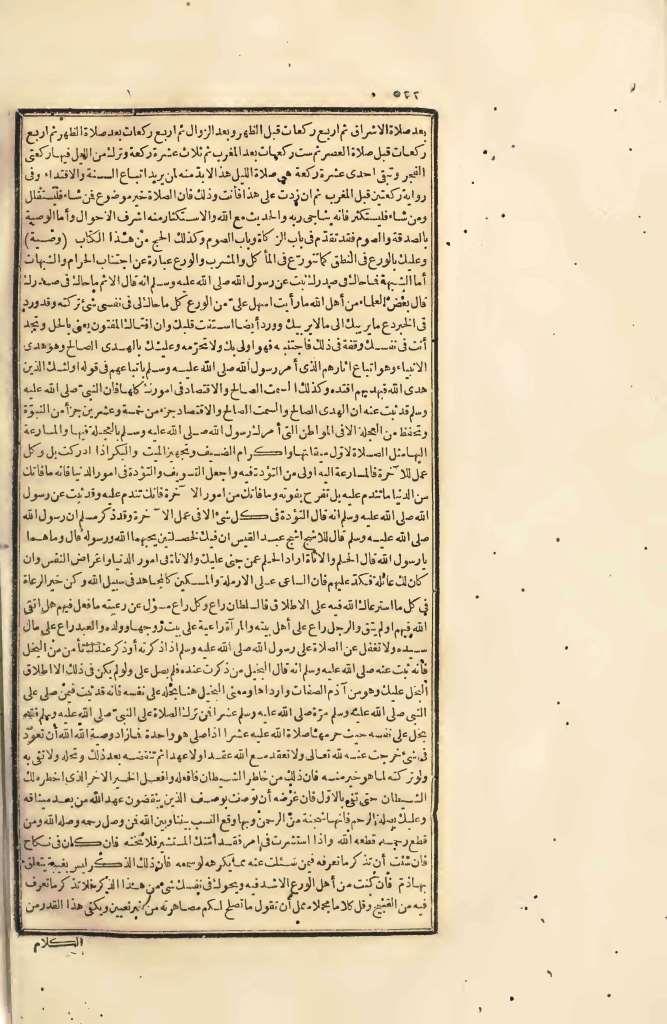 ٥٢٢
بعد صلاة الاشراق ثم اربع ركعات قبل الظهر وبعد الزوال ثم اربع ركعات بعد صلاة الظهر ثم اربع
ركعات قبل صلاة العصر ثم ست ركعات بعد المغرب ثم ثلاث عشرة ركعة وترك من الليل فيها ركعتى
الفجر وتبقى احدى عشرة ركعة هى صلاة الليل هذا لابد منه لمن يريد اتباع السنة والاقتداء وفى
رواية ركعتين قبل المغرب ثم ان زدت على هذا فانت وذلك فان الصلاة خير موضوع فمن شاء فليستقلل
ومن شاء فليستكثر فانه يناجى ربه والحديث مع الله والاستكثار منه اشرف الاحوال وأما الوصية
بالصدقة والصوم فقد تقدم فى باب الزكاة وباب الصوم وكذلك الحج من هذا الكتاب (وصية)
وعليك بالورع فى النطق كما تتورع فى المأكل والمشرب والورع عبارة عن اجتناب الحرام والشبهات
أما الشبهة فما حاك فى صدرك ثبت عن رسول الله صلى الله عليه وسلم انه قال الاثم ما حاك فى صدرك
قال بعض العلماء من أهل الله ما رأيت اسهل على من الورع كل ما حاك لى فى نفسى شئ تركته وقد ورد
فى الخبر دع ما يريبك الى ما لا يريبك وورد أيضا استفت قلبك وان افتاك المفتون يعنى بالحل وتجد
أنت فى نفسك وقفة فى ذلك فاجتنبه فهو اولى بك ولا تحرمه وعليك بالهدى الصالح وهو هدى
الانبياء وهو اتباع اثارهم الذى أمر رسول الله صلى الله عليه وسلم باتباعهم فى قوله اولئك الذين
هدى الله فبهديهم اقتده وكذلك السمت الصالح والاقتصاد فى امورك كلها فان النبى صلى الله عليه
وسلم قد ثبت عنه ان الهدى الصالح والسمت الصالح والاقتصاد جزء من خمسة وعشرين جزأ من النبوة
وتحفظ من العجلة الا فى المواطن التى أمرك رسول الله صلى الله عليه وسلم بالعجلة فيها والمسارعة
اليها مثل الصلاة لاول ميقاتها واكرام الضيف وتجهيز الميت والبكر اذا ادركت بل وكل
عمل للآخرة فالمسارعة اليه اولى من التؤدة فيه واجعل التسويف والتؤدة فى امور الدنيا فانه ما فاتك
من الدنيا ما تندم عليه بل تفرح بفوته وما فاتك من امور الآخرة فانك تندم عليه وقد ثبت عن رسول
الله صلى الله عليه وسلم انه قال التؤدة فى كل شئ الا فى عمل الآخرة وقد ذكر مسلم ان رسول الله
صلى الله عليه وسلم قال للاشج اشج عبد القيس ان فيك لخصلتين يحبهما الله ورسوله قال وما هما
يا رسول الله قال الحلم والاناة اراد الحلم عمن جنى عليك والاناة فى امور الدنيا واغراض النفس وان
كان لك عائلة فكد عليهم فان الساعى على الارملة والمسكين كالمجاهد فى سبيل الله وكن خير الرعاة
فى كل ما استرعاك الله فيه على الاطلاق فالسلطان راع وكل راع مسؤل عن رعيته ما فعل فيهم هل اتقى
الله فيهم اولم يتق والرجل راع على أهل بيته والمرأة راعية على بيت زوجها وولده والعبد راع على مال
سيده ولا تغفل عن الصلاة على رسول الله صلى الله عليه وسلم اذا ذكرته أو ذكر عندك تأمن من البخل
فانه ثبت عنه صلى الله عليه وسلم انه قال البخيل من ذكرت عنده فلم يصل على ولو لم يكن فى ذلك الا اطلاق
البخل عليك وهو من أذم الصفات وارداها ومعنى البخيل هنا بخله على نفسه فانه قد ثبت فيمن صلى على
النبى صلى الله عليه وسلم مرة صلى الله عليه وسلم عشرا فمن ترك الصلاة على النبى صلى الله عليه وسلم فقد
بخل على نفسه حيث حرمها صلاة الله عليه عشرا اذا صلى هو واحدة فما زاد وصية الله الله أن تعود
فى شئ خرجت عنه لله تعالى ولا تعقد مع الله عقدا ولا عهدا ثم تنقضه بعد ذلك وتحله ولا تفى به
ولو تركته لما هو خير منه فان ذلك من خاطر الشيطان فافعله وافعل الخير الآخر الذى اخطره لك
الشيطان حتى تفى بالاول فان غرضه أن توصف بوصف الذين ينقضون عهد الله من بعد ميثاقه
وعليك بصلة الرحم فانها شجنة من الرحمن وبها وقع النسب بيننا وبين الله فمن وصل رحمه وصله الله ومن
قطع رحمه قطعه الله واذا استشرت فى امر فقد أمنك المستشير فلا تخنه فان كان فى نكاح
فان شئت أن تذكر ما تعرفه فيمن سئلت عنه مما يكرهه لو سمعه فان ذلك الذكر ليس بغيبة يتعلق
بها ذم فان كنت من أهل الورع الاشد فيه ويحوك فى نفسك شئ من هذا الذكر فلا تذكر ما تعرف
فيه من القبيح وقل كلاما مجملا مثل أن تقول ما تصلح لكم مصاهرته من غير تعيين ويكفى هذا القدر من
الكلام